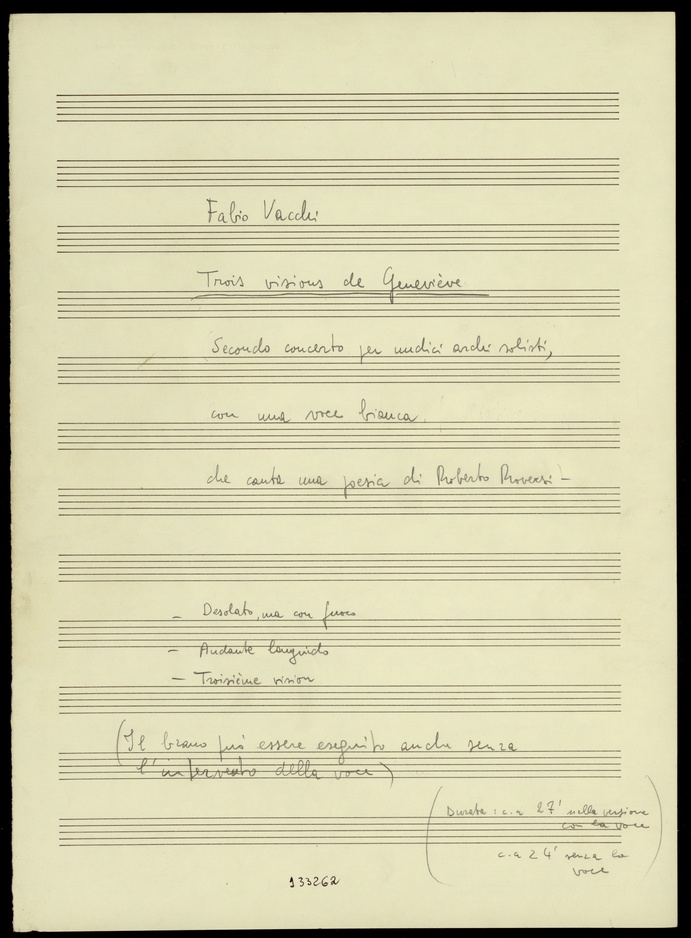 Fabio Vacchi
Trois visions de Geneviève
Secondo concerto per undici archi solisti,
con una voce bianca.
che canta una poesia di Roberto Roversi –
– Desolato, ma con fuoco
– Andante languido
– Troisième vision
(Il brano può essere eseguito anche senza
l'intervento della voce)
(Durata: c.a 27' nella versione
con la voce
c.a 24' senza la
voce)
133262